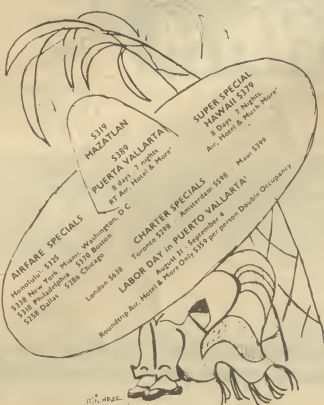 $319
MAZATLAN
$389
PUERTA VALLARTA
8 days 7 nights
RT Air, Hotel & More'
SUPER SPECIAL
HAWAII $379
8 Days 7 Nights.
Air, Hotel & Much More'
AIRFARE SPECIALS
Honolulu' $325
$338 New York, Miami, Washington, D C
$318 Philadelphia $370 Boston
$258 Dallas $286 Chicago
CHARTER SPECIALS
Toronto $298 Amsterdam $598 Maui $399
London $638
LABOR DAY in PUERTO VALLARTA'
August 31 - September 4
Roundtrip Air, Hotel & More Only $359 per person Double Occupancy